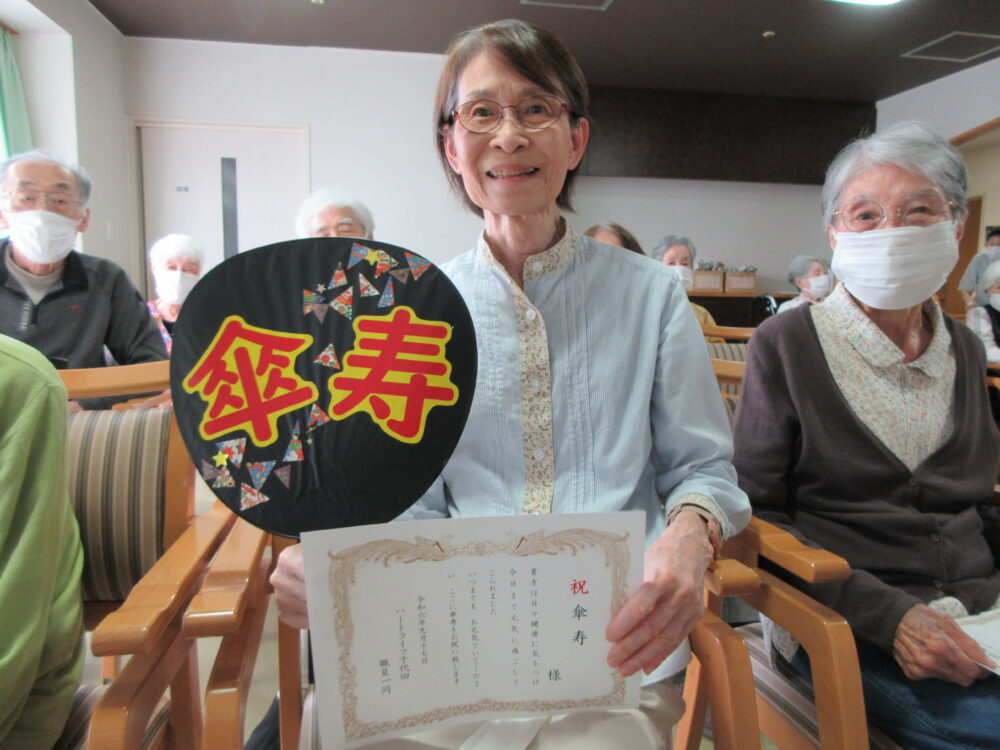 傘寿
祝 傘寿
様
貴方は日々健康に気をつけ
今日まで元気に過ごして
こられました
いつまでも お元気でいてくださ
い、ここに傘寿をお祝い致します
令和六年九月十七日
ハートライフ千代田
職員一同